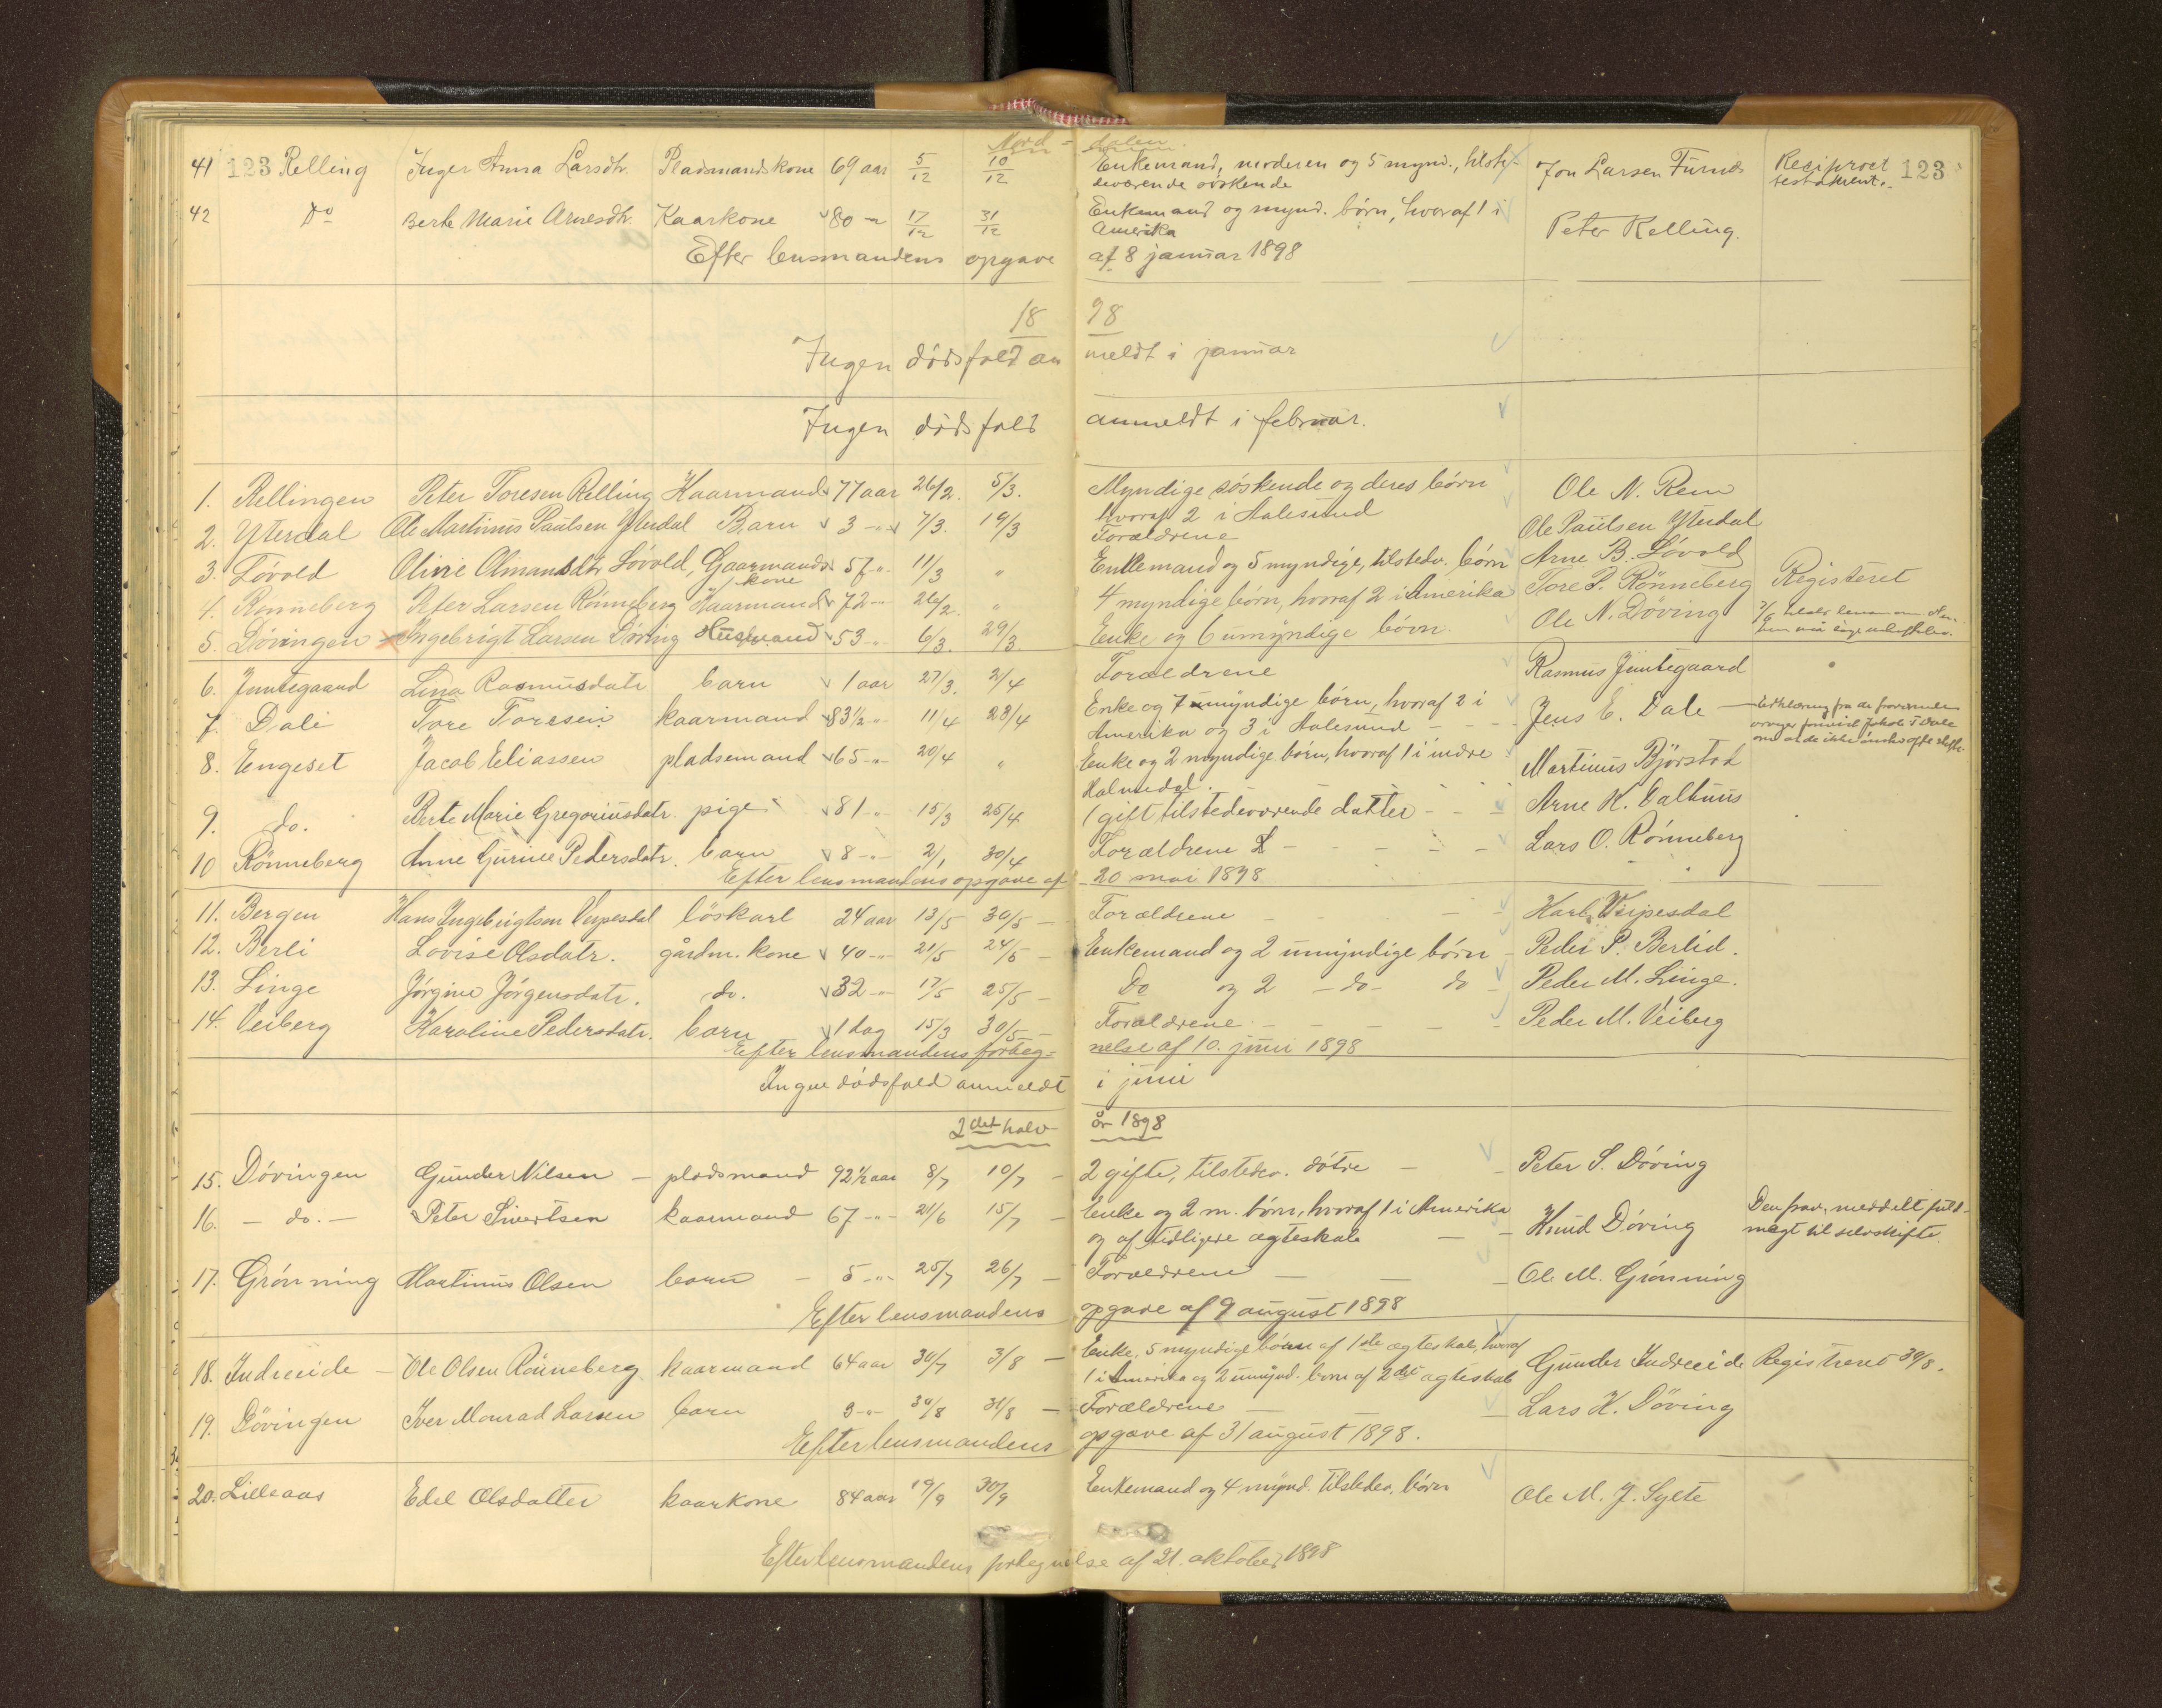 Nord- dalen
41 123 Relling Inger Anna Larsdtr. Pladsmandskone 69 aar 5/12 10/12 Enkemand, moderen og 5 mynd., tilste- Jon Larsen Furnes Reciproct 123
deværende söskende testament.
42 Do Berte Marie Arnesdtr. Kaarkone 80 " 17/12 31/12 Enkemand og mynd. börn, hvoraf 1 i Peter Relling.
Amerika
Efter lensmandens opgave af 8 januar 1898
18 98
Ingen dödsfald an meldt i januar
Ingen dödsfald anmeldt i februar.
1. Rellingen Peter Toresen Relling Kaarmand 77 aar 26/2. 5/3. Myndige söskende og deres börn Ole N. Rem
hvoraf 2 i Aalesund
2. Yterdal Ole Martinus Paulsen Yterdal Barn 3 " 7/3. 19/3 Forældrene Ole Paulsen Yterdal
3. Lövold Oline Olmandsdtr Lövold, Gaarmands- 57 " 11/3 " Enkemand og 5 myndige, tilstedv. börn Arne B. Lövold
kone
4. Rönneberg Peter Larsen Rönneberg Kaarmand 72 " 26/2. " 4 myndige börn, hvoraf 2 i Amerika Tore P. Rönneberg Registeret
5. Dövingen Ingebrigt Larsen Döving Husmand 53 " 6/3. 29/3 Enke og 6 umyndige börn. Ole N. Döving
6. Jemtegaard Lina Rasmusdatr barn 1 aar 27/3. 2/4 Forældrene Rasmus Jemtegaard
7. Dali Tore Toresen kaarmand 83 1/2 " 11/4 23/4 Enke og 7 myndige börn, hvoraf 2 i Jens E. Dale Erklæring fra de fraværende
Amerika og 3 i Aalesund
8. Engeset Jacob Eliassen pladsemand 65 " 20/4 " Enke og 2 myndige börn, hvoraf 1 i indre Martinus Björstad
Holmedal.
9. do. Berte Marie Gregoriusdatr. pige 81 " 15/3 25/4 1 gift tilstedeværende datter Arne K. Dalhus
10 Rönneberg Anne Gurine Pedersdatr. barn 8 " 2/1 30/4 Forældrene Lars O. Rönneberg
Efter lensmandens opgave af 20 mai 1898
11. Bergen Hans Ingebrigtsen Verpesdal löskarl 24 aar 13/5 30/5 Forældrene Karl Verpesdal
12. Berli Lovise Olsdatr. gårdm. kone 40 " 21/5 24/5 Enkemand og 2 umyndige börn Peder P. Berlid.
13. Linge Jörgine Jörgensdatr. do. 32 " 17/5 25/5 Do og 2 do do Peder M. Linge.
14. Veiberg Karoline Pedersdatr. barn 1 dag 15/3 30/5 Forældrene Peder M. Veiberg
Efter lensmandens forteg- nelse af 10. juni 1898
Ingen dödsfald anmeldt i juni
2det halv- år 1898
15. Dövingen Gunder Nilsen pladsmand 92 1/2 aar 8/7 10/7 2 gifte, tilstedev. dötre Peter S. Döving
16. do. Peter Sivertsen kaarmand 67 " 21/6 15/7 Enke og 2 m. börn, hvoraf 1 i Amerika Knud Döving Den frav. meddelt fuld-
og af tidligere ægteskab magt til selvskifte.
17. Grönning Martinus Olsen barn 5 " 25/7 26/7 Forældrene Ole M. Grönning
Efter lensmandens opgave af 9 august 1898
18. Indreeide Ole Olsen Rönneberg kaarmand 64 aar 30/7 3/8 Enke, 5 myndige börn af 1ste ægteskab, hvoraf Gunder Indreeide Registreret 30/8.
1 i Amerika og 2 umynd. börn af 2det ægteskab
19. Dövingen Iver Monrad Larsen barn 3 " 30/8 31/8 Forældrene Lars K. Döving
Efter lensmandens opgave af 31 august 1898.
20. Lilleaas Edel Olsdatter kaarkone 84 aar 19/9 30/9 Enkemand og 4 mynd. tilstedev. börn Ole M. J. Sylte
Efter lensmandens fortegnelse af 21. oktober 1898